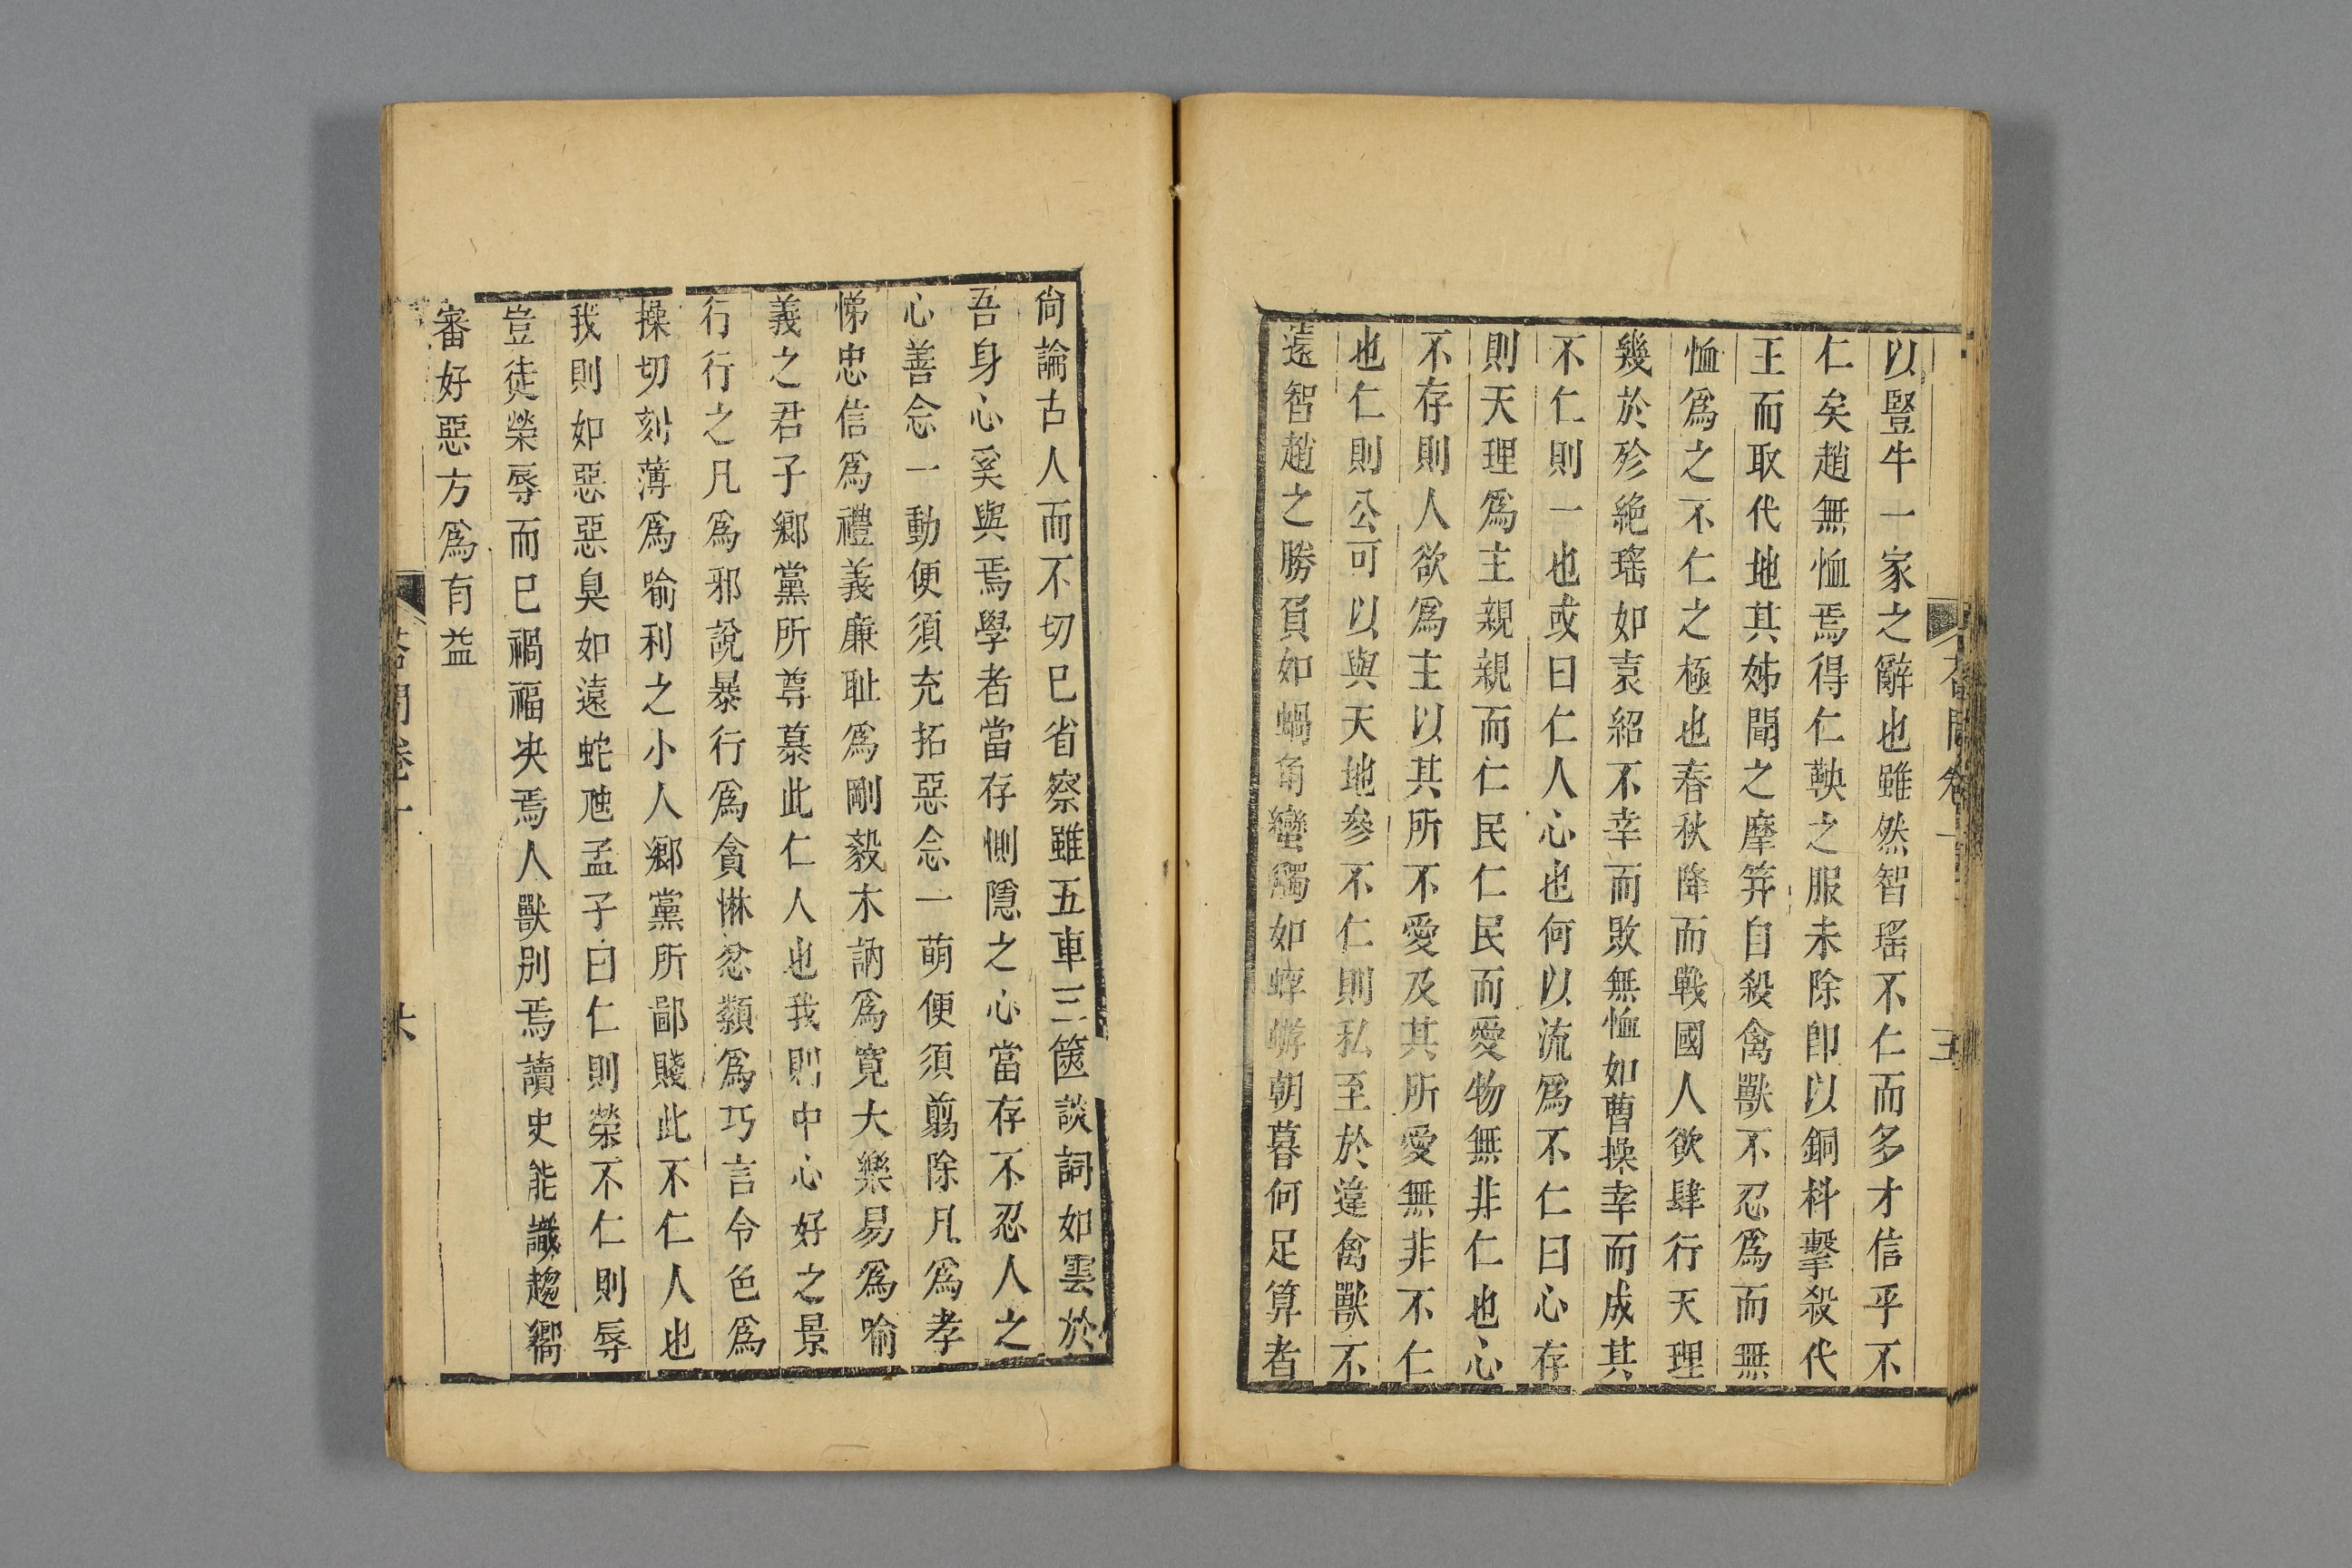 以豎牛一家之辭也雖然智瑤不仁而多才信乎不
仁矣趙無恤焉得仁鞅之服未除卽以銅枓擊殺代
王而取代地其姊聞之摩笄自殺禽獸不忍爲而無
恤爲之不仁之極也春秋降而戰國人欲肆行天理
幾於殄絶瑤如袁紹不幸而敗無恤如曹操幸而成其
不仁則一也或曰仁人心也何以流爲不仁曰心存
則天理爲主親親而仁民仁民而愛物無非仁也心
不存則人欲爲主以其所不愛及其所愛無非不仁
也仁則公可以與天地參不仁則私至於違禽獸不
遠智趙之勝負如蝸角蠻觸如蜉蝣朝暮何足算者
尙論古人而不切已省察雖五車三篋談詞如雲於
吾身心奚與焉學者當存惻隱之心當存不忍人之
心善念一動便須充拓惡念一萌便須翦除凡爲孝
悌忠信爲禮義廉耻爲剛毅木訥爲寬大樂易爲喻
義之君子鄉黨所尊慕此仁人也我則中心好之景
行行之凡爲邪說暴行爲貪惏忿纇爲巧言令色爲
操切刻薄爲喻利之小人鄉黨所鄙賤此不仁人也
我則如惡惡臭如遠蛇虺孟子曰仁則榮不仁則辱
豈徒榮辱而已禍福决焉人獸別焉讀史能識趨嚮
審好惡方爲有益